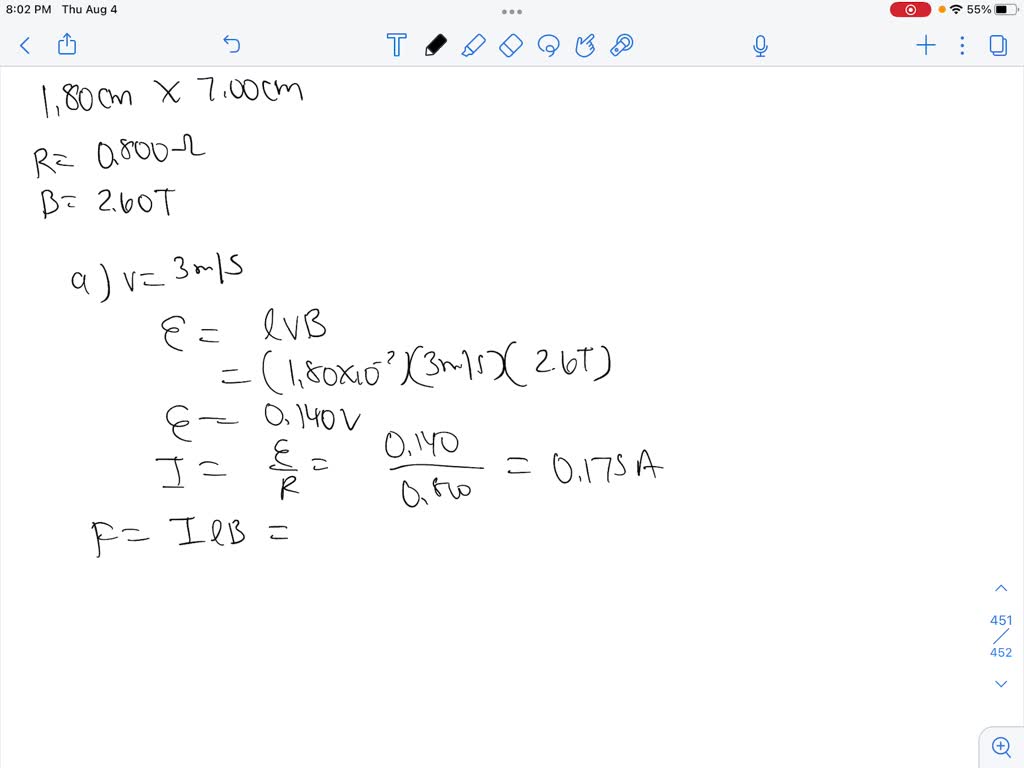 8:02 PM Thu Aug 4
55%
T
1.80cm × 7.00cm
R= 0.800Ω
B= 2.60T
a) v= 3m/s
ε = lvB
= (1.80×10⁻²)(3m/s)(2.6T)
ε = 0.140V
I = ε/R = 0.140/0.800 = 0.175A
F = IlB =
451
/
452